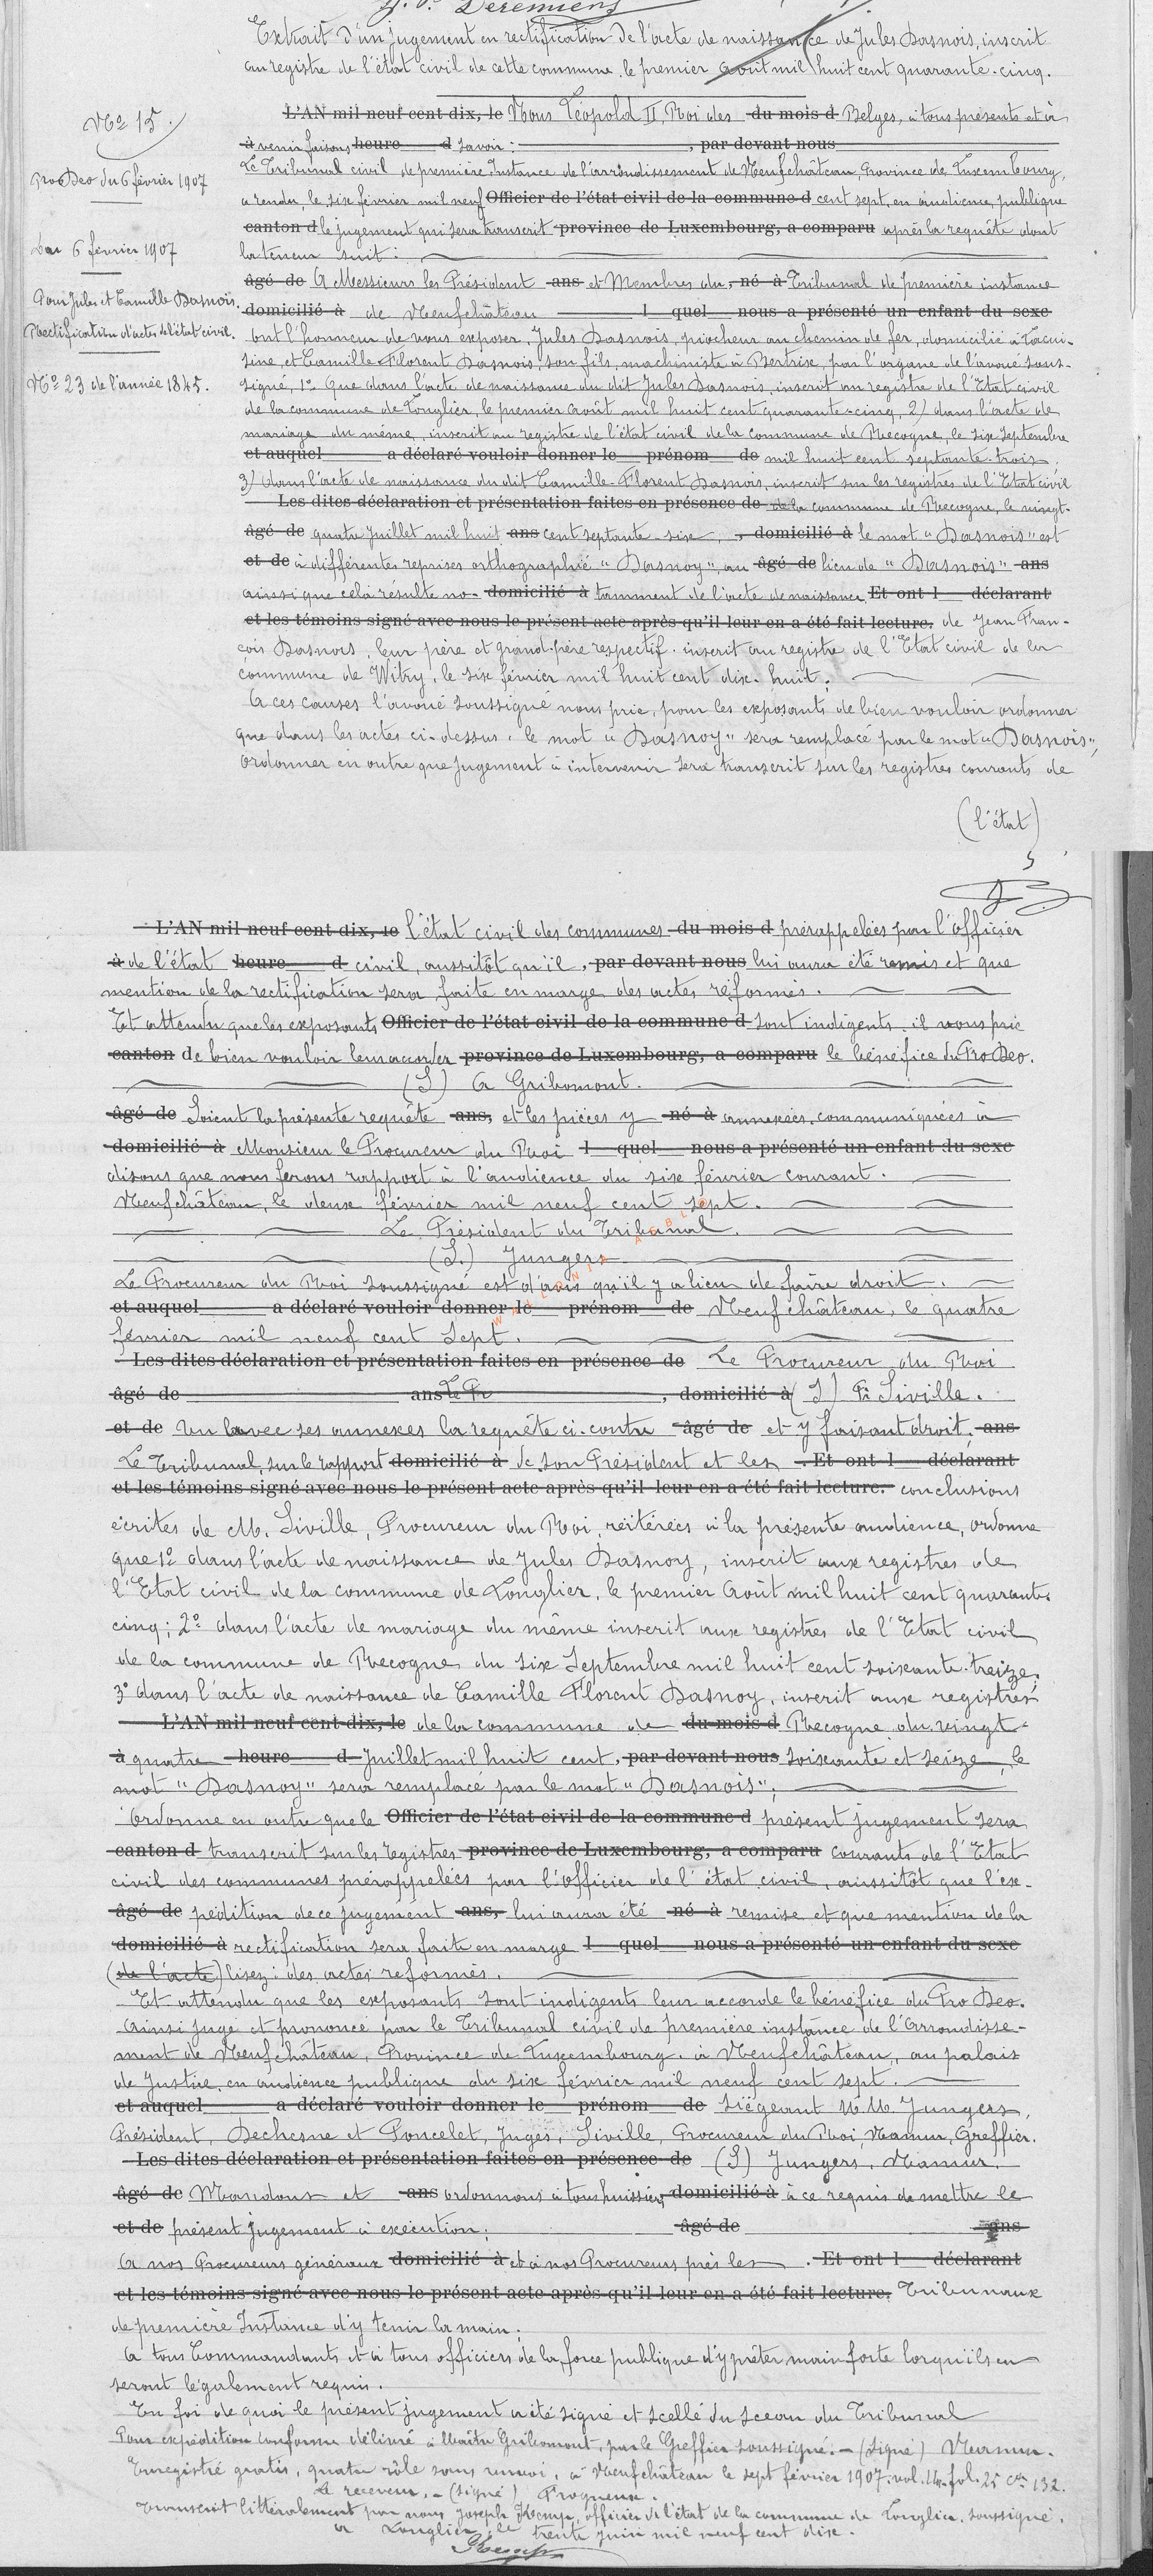 Extrait d'un jugement en rectification de l'acte de naissance de Jules Dasnois, inscrit
au registre de l'état civil de cette commune le premier août mil huit cent quarante-cinq.
N° 15
L'AN mil neuf cent dix, le Nous Léopold II, Roi des du mois d Belges, à tous présents et à
à venir faisons heure d savoir : , par devant nous
Pro Deo du 6 février 1907
Le Tribunal civil de première Instance de l'arrondissement de Neufchâteau, Province de Luxembourg,
a rendu, le six février mil neuf Officier de l'état civil de la commune d cent sept, en audience publique
canton d le jugement qui sera transcrit province de Luxembourg, a comparu après la requête dont
6 février 1907
la teneur suit :
âgé de A Messieurs les Président ans et Membres du, né à Tribunal de première instance
Pour Jules et Camille Dasnois.
domicilié à de Neufchâteau l quel nous a présenté un enfant du sexe
Rectification d'actes de l'état civil.
ont l'honneur de vous exposer, Jules Dasnois, piocheur au chemin de fer, domicilié à Lacui-
sine, et Camille-Florent Dasnois, son fils, machiniste à Bertrix, par l'organe de l'avoué sous-
N° 23 de l'année 1845.
signé, 1° Que dans l'acte de naissance du dit Jules Dasnois, inscrit au registre de l'Etat civil
de la commune de Longlier, le premier août mil huit cent quarante-cinq, 2) dans l'acte de
mariage du même, inscrit au registre de l'état civil de la commune de Recogne, le six Septembre
et auquel a déclaré vouloir donner le prénom de mil huit cent septante-trois,
3) dans l'acte de naissance du dit Camille-Florent Dasnois, inscrit sur les registres de l'Etat civil
Les dites déclaration et présentation faites en présence de de la commune de Recogne, le vingt-
âgé de quatre Juillet mil huit ans cent septante-six, , domicilié à le mot "Dasnois" est
et de à différentes reprises orthographié "Dasnoy", au âgé de lieu de "Dasnois" ans
ainsi que cela résulte no- domicilié à tamment de l'acte de naissance Et ont l déclarant
et les témoins signé avec nous le présent acte après qu'il leur en a été fait lecture. de Jean Fran-
çois Dasnois, leur père et grand-père respectif, inscrit au registre de l'Etat civil de la
commune de Witry, le six février mil huit cent dix-huit ;
A ces causes l'avoué soussigné nous prie, pour les exposants de bien vouloir ordonner
que dans les actes ci-dessus, le mot "Dasnoy" sera remplacé par le mot "Dasnois",
ordonner en outre que jugement à intervenir sera transcrit sur les registres courants de
(l'état)
5
L'AN mil neuf cent dix, le l'état civil des communes du mois d prérappelées par l'officier
à de l'état heure d civil, aussitôt qu'il , par devant nous lui aura été remis et que
mention de la rectification sera faite en marge des actes réformés.
Et attendu que les exposants Officier de l'état civil de la commune d sont indigents, il vous prie
canton de bien vouloir leur accorder province de Luxembourg, a comparu le bénéfice du Pro Deo.
(S) A Gribomont.
âgé de Soient la présente requête ans, et les pièces y né à annexées, communiquées à
domicilié à Monsieur le Procureur du Roi l quel nous a présenté un enfant du sexe
disons que nous ferons rapport à l'audience du six février courant.
Neufchâteau, le deux février mil neuf cent sept.
Le Président du Tribunal.
(S.) Jungers
Le Procureur du Roi soussigné est d'avis qu'il y a lieu de faire droit.
et auquel a déclaré vouloir donner le prénom de Neufchâteau, le quatre
février mil neuf cent sept.
Les dites déclaration et présentation faites en présence de Le Procureur du Roi
âgé de ans Le Pr , domicilié à (S) Siville.
et de Vu avec ses annexes la requête ci-contre âgé de et y faisant droit, ans
Le Tribunal, sur le rapport domicilié à de son Président et les . Et ont l déclarant
et les témoins signé avec nous le présent acte après qu'il leur en a été fait lecture. conclusions
écrites de M. Siville, Procureur du Roi, réitérées à la présente audience, ordonne
que 1° dans l'acte de naissance de Jules Dasnoy, inscrit aux registres de
l'Etat civil de la commune de Longlier, le premier Août mil huit cent quarante
cinq ; 2° dans l'acte de mariage du même inscrit aux registres de l'Etat civil
de la commune de Recogne du six Septembre mil huit cent soixante-treize,
3° dans l'acte de naissance de Camille Florent Dasnoy, inscrit aux registres
L'AN mil neuf cent dix, le de la commune de du mois d Recogne du vingt-
à quatre heure d Juillet mil huit cent, par devant nous soixante et seize, le
mot "Dasnoy" sera remplacé par le mot "Dasnois" ;
Ordonne en outre que le Officier de l'état civil de la commune d présent jugement sera
canton d transcrit sur les registres province de Luxembourg, a comparu courants de l'Etat
civil des communes prérappelées par l'officier de l'état civil, aussitôt que l'ex-
âgé de pédition de ce jugement ans, lui aura été né à remise et que mention de la
domicilié à rectification sera faite en marge l quel nous a présenté un enfant du sexe
(de l'acte) lisez : des actes reformés.
Et attendu que les exposants sont indigents leur accorde le bénéfice du Pro Deo.
Ainsi jugé et prononcé par le Tribunal civil de première instance de l'Arrondisse-
ment de Neufchâteau, Province de Luxembourg, à Neufchâteau, au palais
de Justice, en audience publique du six février mil neuf cent sept.
et auquel a déclaré vouloir donner le prénom de Siégeant M.M. Jungers,
Président, Dechesne et Poncelet, Juges, Siville, Procureur du Roi, Namur, Greffier.
Les dites déclaration et présentation faites en présence de (S) Jungers, Namur.
âgé de Mandons et ans ordonnons à tous huissiers domicilié à à ce requis de mettre le
et de présent jugement à exécution ; âgé de ans
A nos Procureurs généraux domicilié à et à nos Procureurs près les . Et ont l déclarant
et les témoins signé avec nous le présent acte après qu'il leur en a été fait lecture. Tribunaux
de première Instance d'y tenir la main ;
A tous Commandants et à tous officiers de la force publique d'y prêter main forte lorsqu'ils en
seront légalement requis.
En foi de quoi le présent jugement a été signé et scellé du sceau du Tribunal
Pour expédition conforme délivré à Maître Gribomont, par le Greffier soussigné. - (Signé) Namur.
Enregistré gratis, quatre rôle sans renvoi, à Neufchâteau le sept février 1907. vol. fol. 25 Cse 132.
Le receveur, - (signé)
Transcrit littéralement par nous Joseph Kemp, officier de l'état de la commune de Longlier, soussigné.
a Longlier, le trente juin mil neuf cent dix.
Kemp